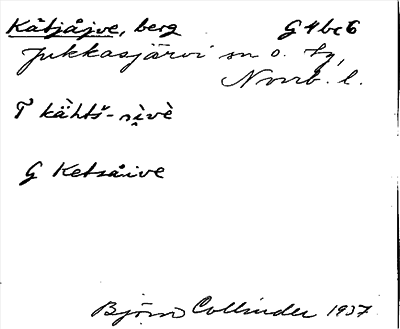 Kåtjåjve, berg G 4 bc 6
Jukkasjärvi sn o. tg,
Norrb. l.
T kɑ̀htš-nìvè
G Ketsåive
Björn Collinder 1937